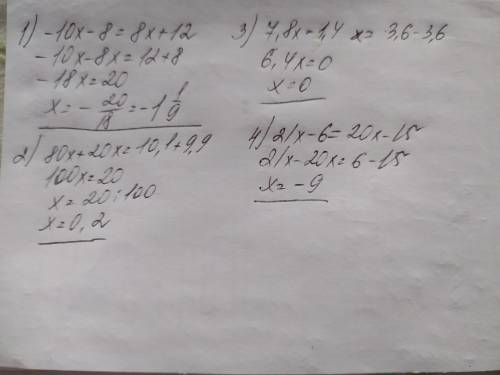 1) -10x-8=8x+12
-10x-8x=12+8
-18x=20
x=-20/18=-1 1/9
2) 80x+20x=10,1+9,9
100x=20
x=20:100
x=0,2
3) 7,8x-1,4x=3,6-3,6
6,4x=0
x=0
4) 21x-6=20x-15
21x-20x=6-15
x=-9